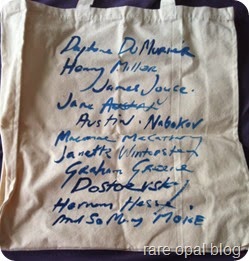 Daphne DuMurier
Henry Miller
James Joyce.
Jane
Austin. Nabokov
McCarthy
Janette Winterston
Graham Greene
Dostoevsky
Hermann Hesse.
And So Many MORE
rare opal blog